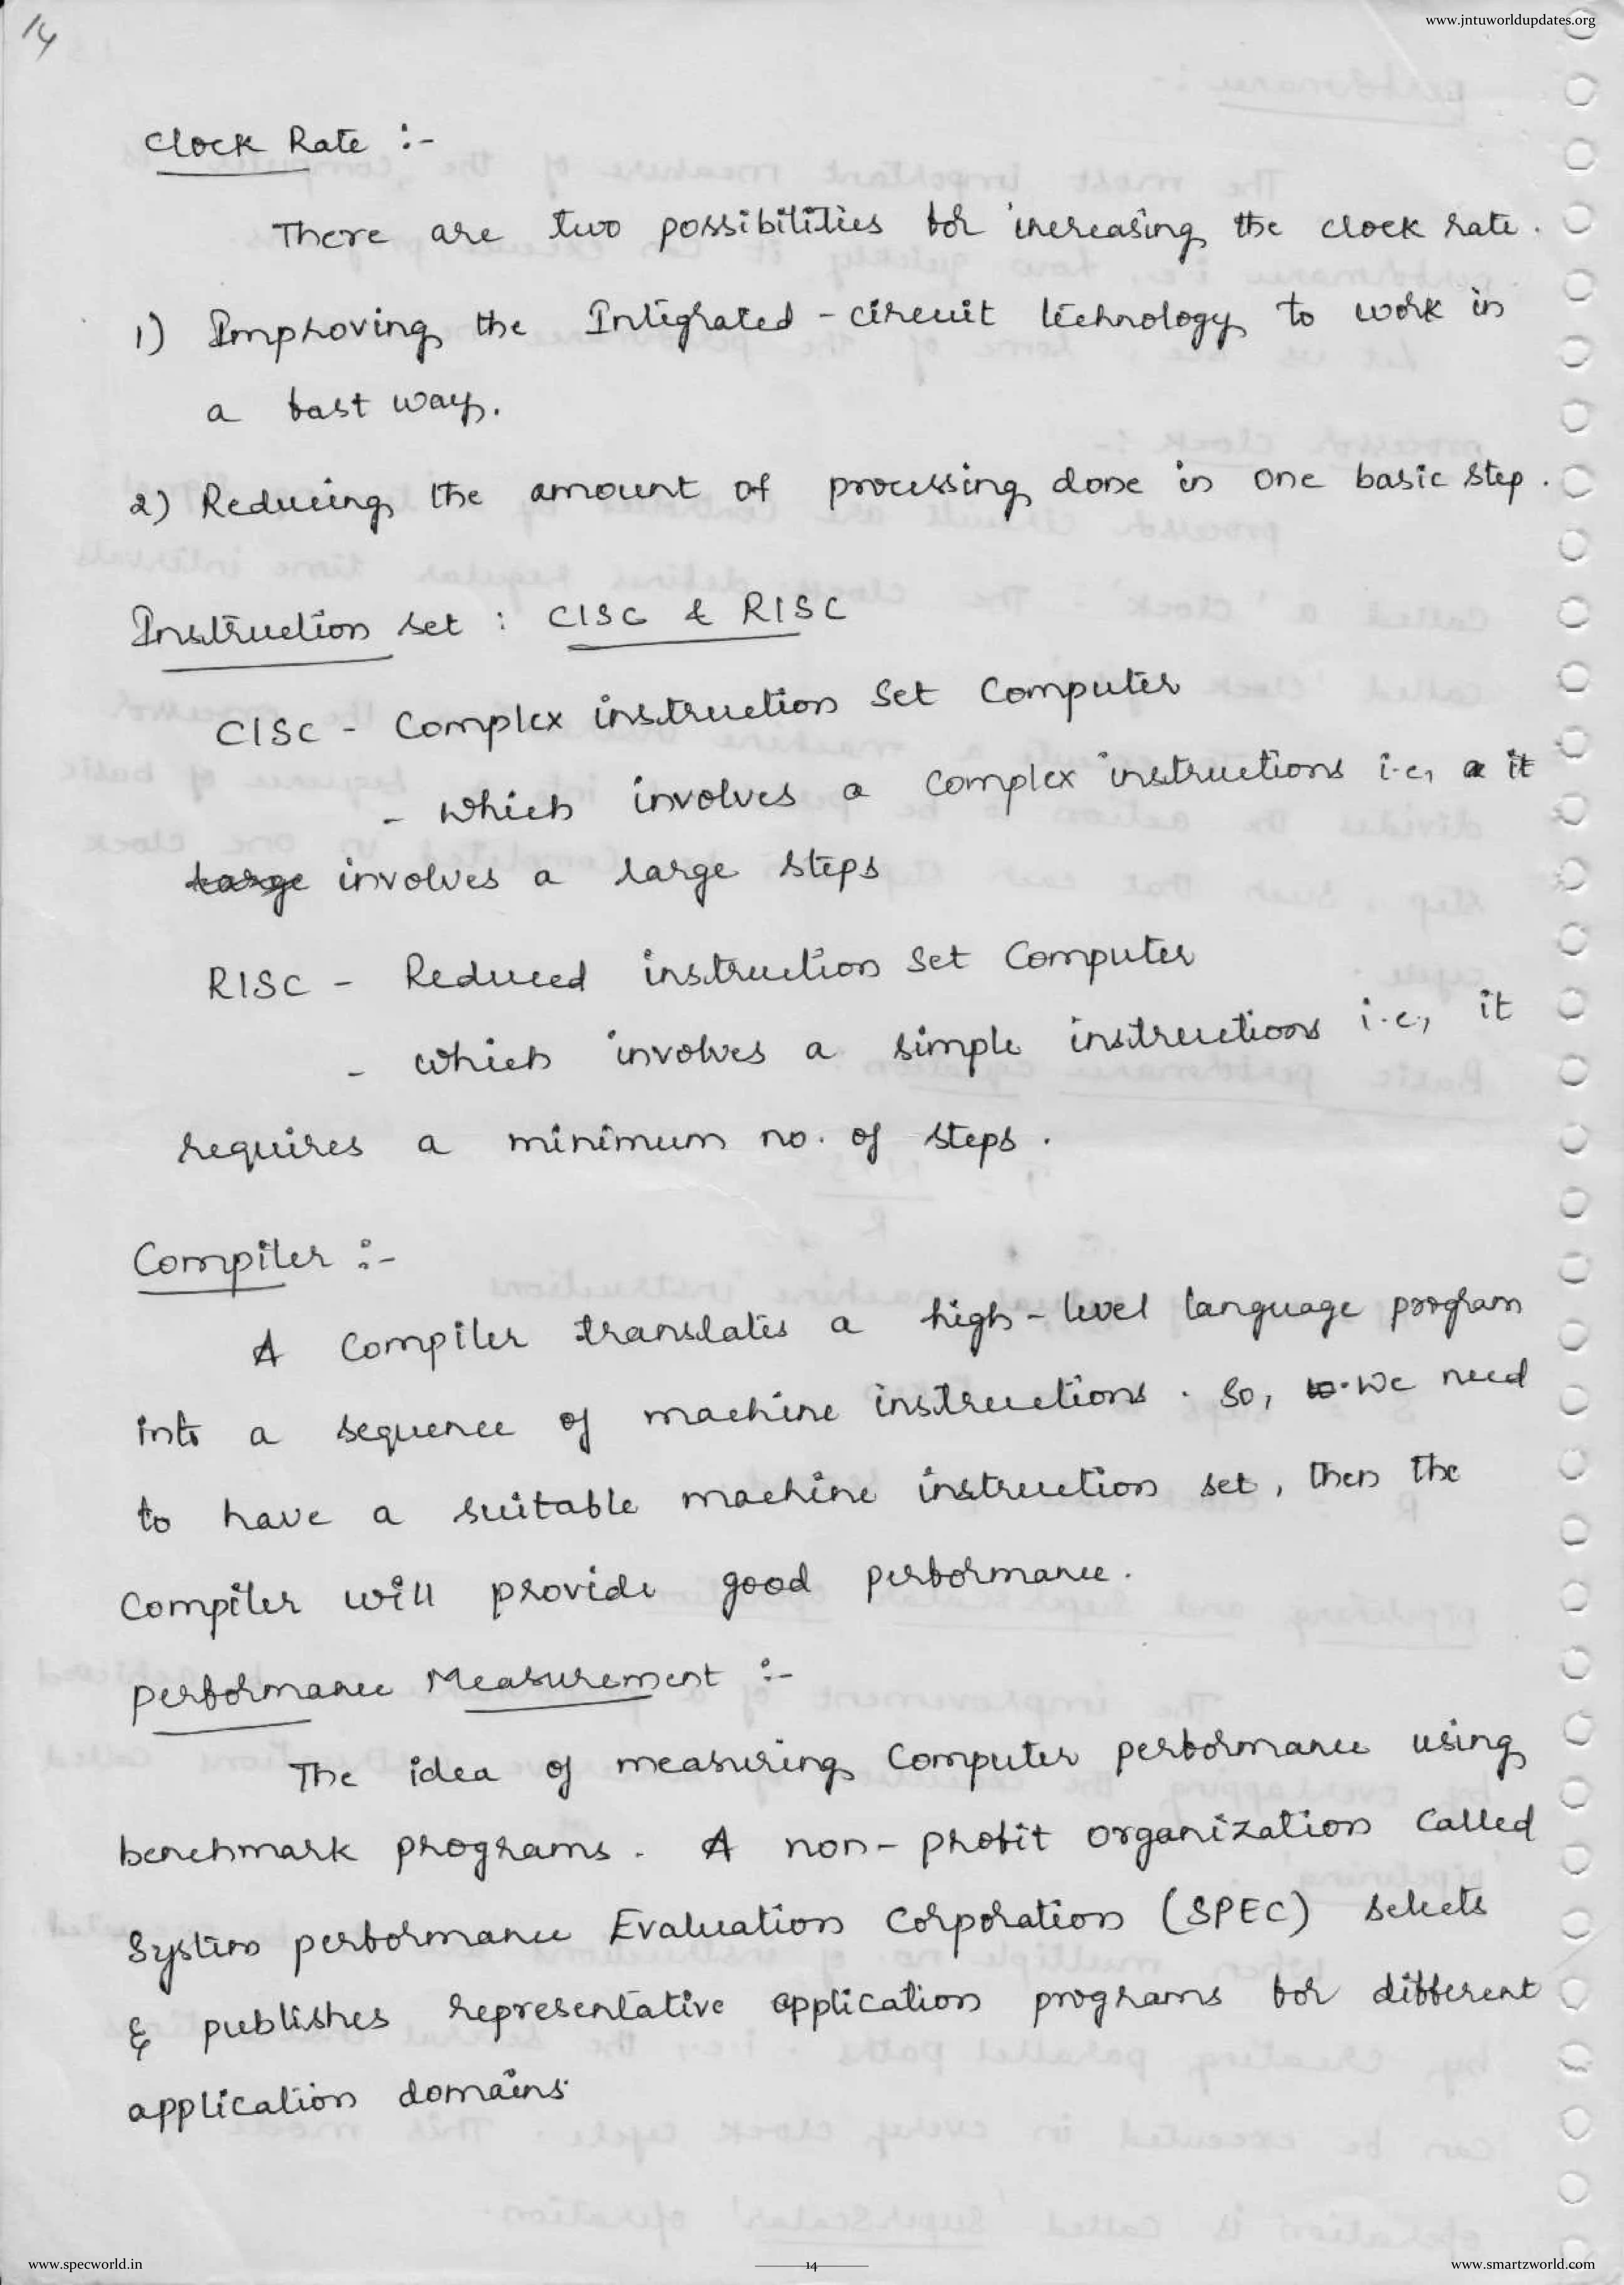 14
www.jntuworldupdates.org
Clock Rate :-
There are two possibilities for increasing the clock rate.
1) Improving the Integrated-circuit technology to work in
a fast way.
2) Reducing the amount of processing done in one basic step.
Instruction set : CISC & RISC
CISC - Complex instruction Set Computer
- which involves a complex instructions i.e, a it
large involves a large steps
RISC - Reduced instruction Set Computer
- which involves a simple instructions i.e, it
requires a minimum no. of steps.
Compiler :-
A Compiler translates a high-level language program
into a sequence of machine instructions. So, we need
to have a suitable machine instruction set, then the
Compiler will provide good performance.
performance Measurement :-
The idea of measuring Computer performance using
benchmark programs. A non-profit organization called
System performance Evaluation Corporation (SPEC) selects
& publishes representative application programs for different
application domains.
www.specworld.in
14
www.smartzworld.com